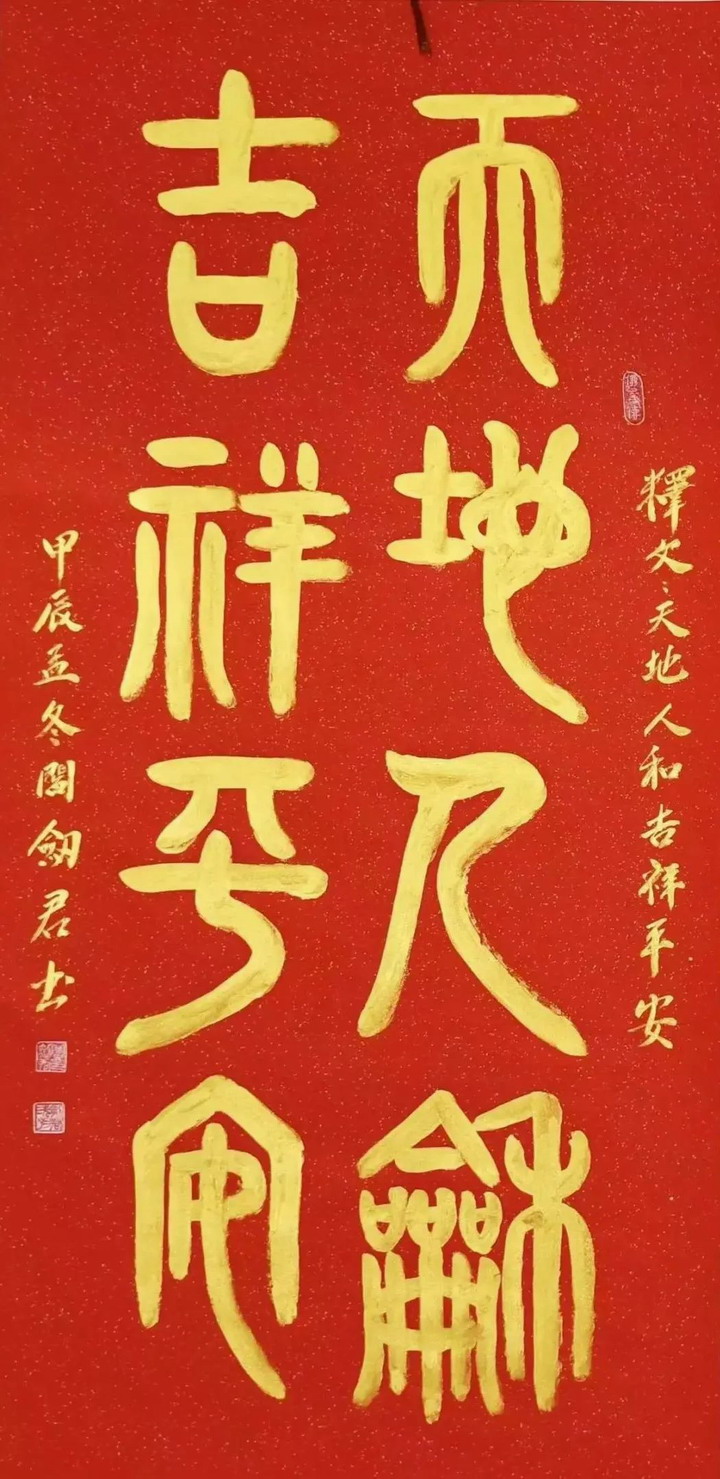 釋文：天地人和吉祥平安
天地人龢
吉祥平安
甲辰孟冬劔君书